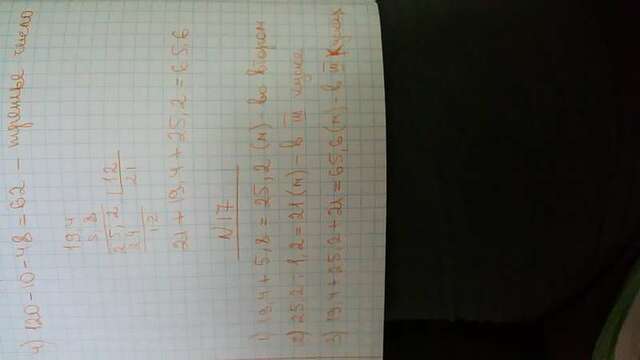 4) 120-10-48=62 - третье число
19,4
5,8
25,2 | 12
24 21
12
21+19,4+25,2=65,6
N17
1) 19,4+5,8=25,2 (м) - во втором
2) 25,2:1,2=21 (м) - в III куске
3) 19,4+25,2+21=65,6 (м) - в III кусках